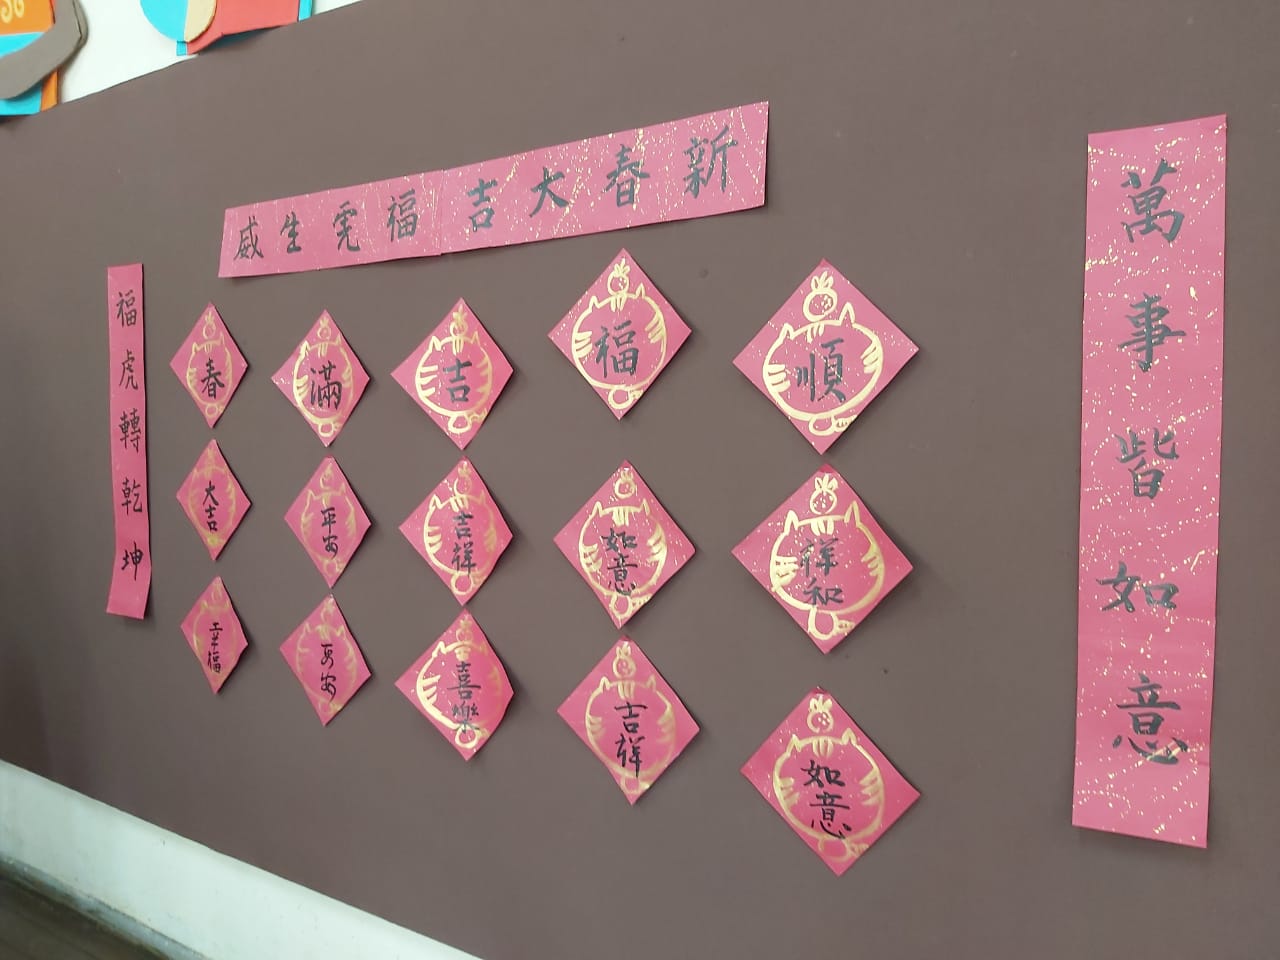 新春大吉福虎生威
萬事皆如意
順
福
吉
滿
春
祥和
如意
吉祥
平安
大吉
如意
吉祥
喜樂
安
幸福
福虎轉乾坤